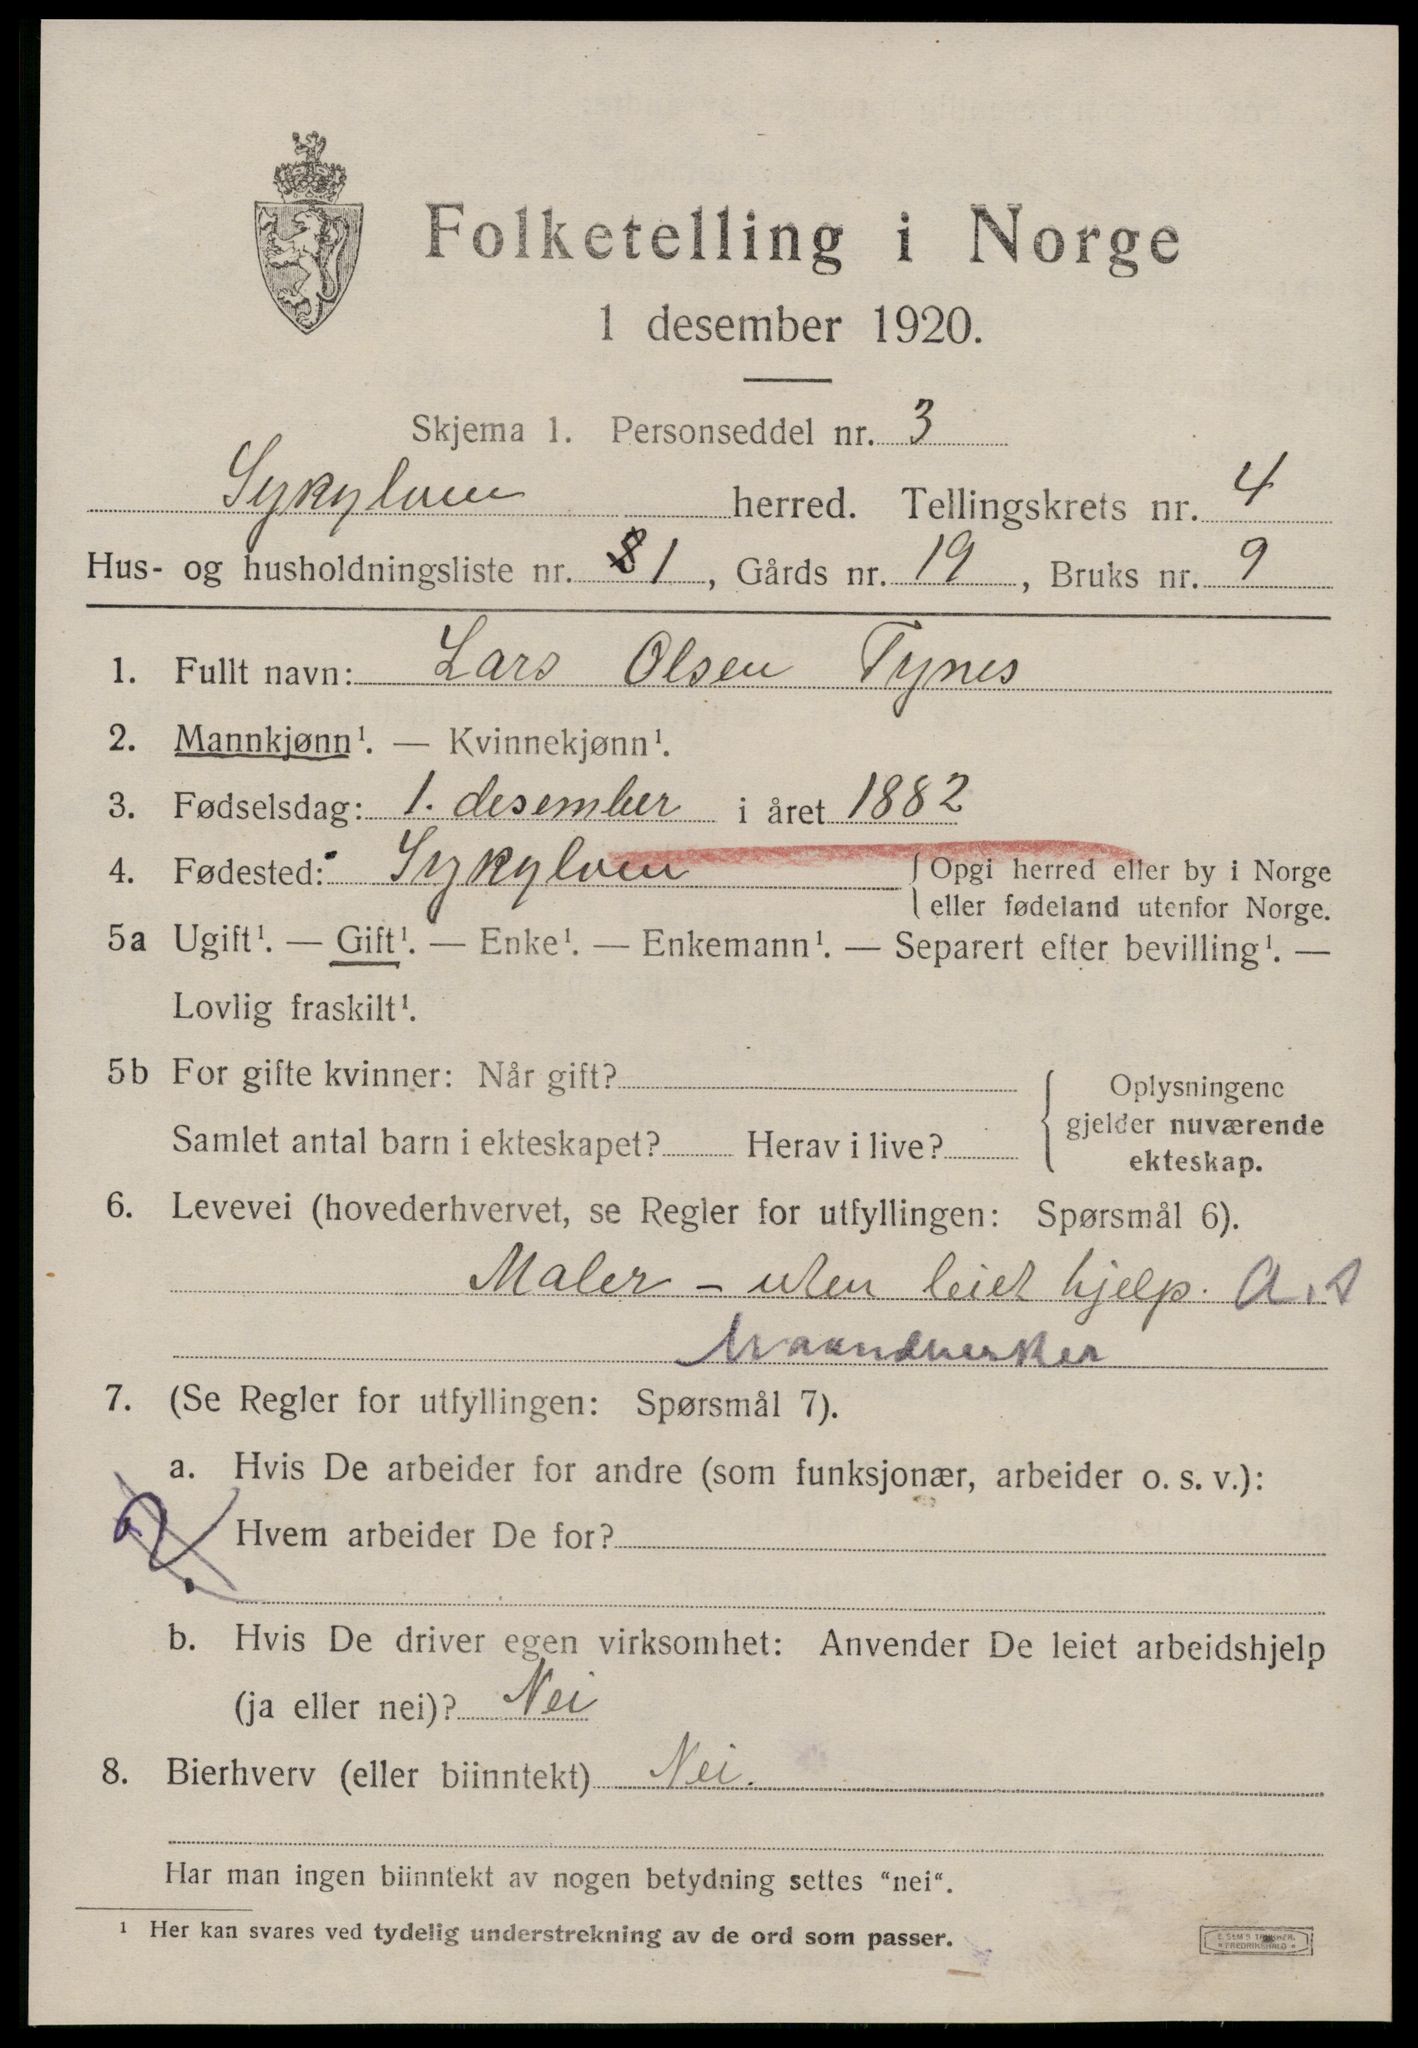 Folketelling i Norge
1 desember 1920.
Skjema 1. Personseddel nr. 3
Sykylven herred. Tellingskrets nr. 4
Hus- og husholdningsliste nr. 81, Gårds nr. 19, Bruks nr. 9
1. Fullt navn: Lars Olsen Tynes
2. Mannkjønn¹. — Kvinnekjønn¹.
3. Fødselsdag: 1. desember i året 1882
4. Fødested: Sykylven {Opgi herred eller by i Norge
eller fødeland utenfor Norge.
5a Ugift¹. — Gift¹. — Enke¹. — Enkemann¹. — Separert efter bevilling¹. —
Lovlig fraskilt¹.
5b For gifte kvinner: Når gift?
Samlet antal barn i ekteskapet? Herav i live?
Oplysningene
gjelder nuværende
ekteskap.
6. Levevei (hovederhvervet, se Regler for utfyllingen: Spørsmål 6).
Maler - uten leiet hjelp.
7. (Se Regler for utfyllingen: Spørsmål 7).
a. Hvis De arbeider for andre (som funksjonær, arbeider o. s. v.):
Hvem arbeider De for?
b. Hvis De driver egen virksomhet: Anvender De leiet arbeidshjelp
(ja eller nei)? Nei
8. Bierhverv (eller biinntekt) Nei.
Har man ingen biinntekt av nogen betydning settes "nei".
¹ Her kan svares ved tydelig understrekning av de ord som passer.